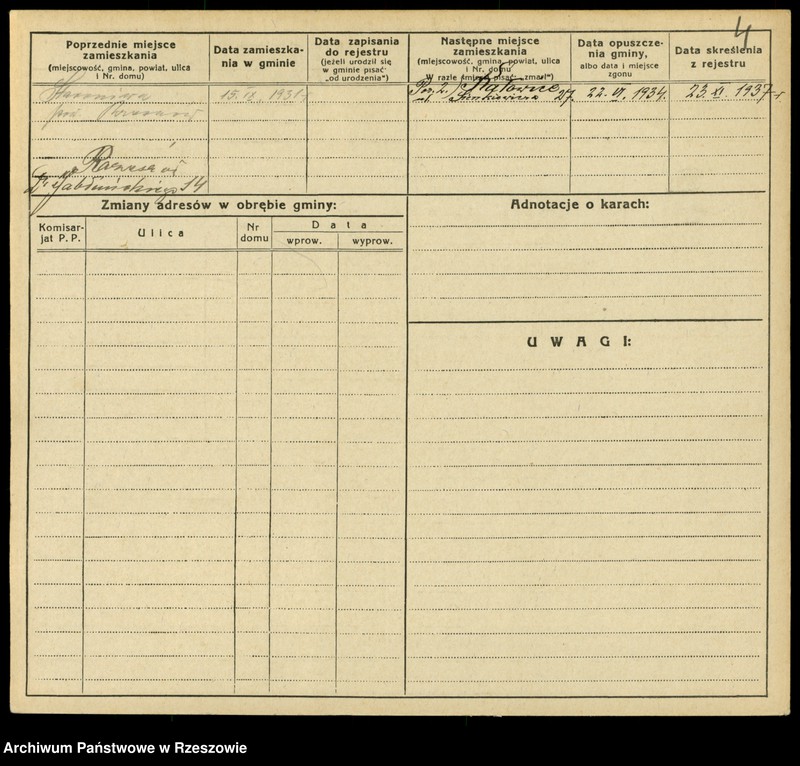 4
Poprzednie miejsce
zamieszkania
(miejscowość, gmina, powiat, ulica
i Nr. domu)
Data zamieszka-
nia w gminie
Data zapisania
do rejestru
(jeżeli urodził się
w gminie pisać:
„od urodzenia")
Następne miejsce
zamieszkania
(miejscowość, gmina, powiat, ulica
i Nr. domu
W razie śmierci pisać: „zmarł")
Data opuszcze-
nia gminy,
albo data i miejsce
zgonu
Data skreślenia
z rejestru
15. IX. 1931 r
Katowice
ul. Sienkiewicza 27.
22. VI. 1934.
23. XI. 1937 r
Rzeszów
14
Zmiany adresów w obrębie gminy:
Komisar-
jat P. P.
Ulica
Nr
domu
Data
wprow.
wyprow.
Adnotacje o karach:
UWAGI:
Archiwum Państwowe w Rzeszowie